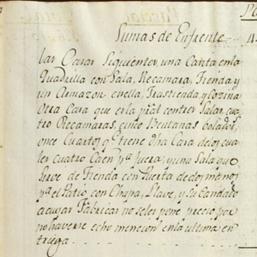 Sumas de Enfrente
las Casas Siguientes, una Caxita en la
Quadrilla con Sala, Recamara, Tienda y
un Armazon en ella, Trastienda y Cozina
Otra Casa que es la pral. con tres Salas, cua
tro Recamaras, cinco Ventanas bolados,
once Cuartos qe. tiene dha Casa de los cua
les cuatro Caen pa. fuera; y una Sala que
sirve de Tienda con Puerta de dos manos
pa. el Patio, con Chapa, Llave, y su Candado
a cuyas Fabricas no se les pone precio pr.
no haverse echo mencion en la ultima en
trega